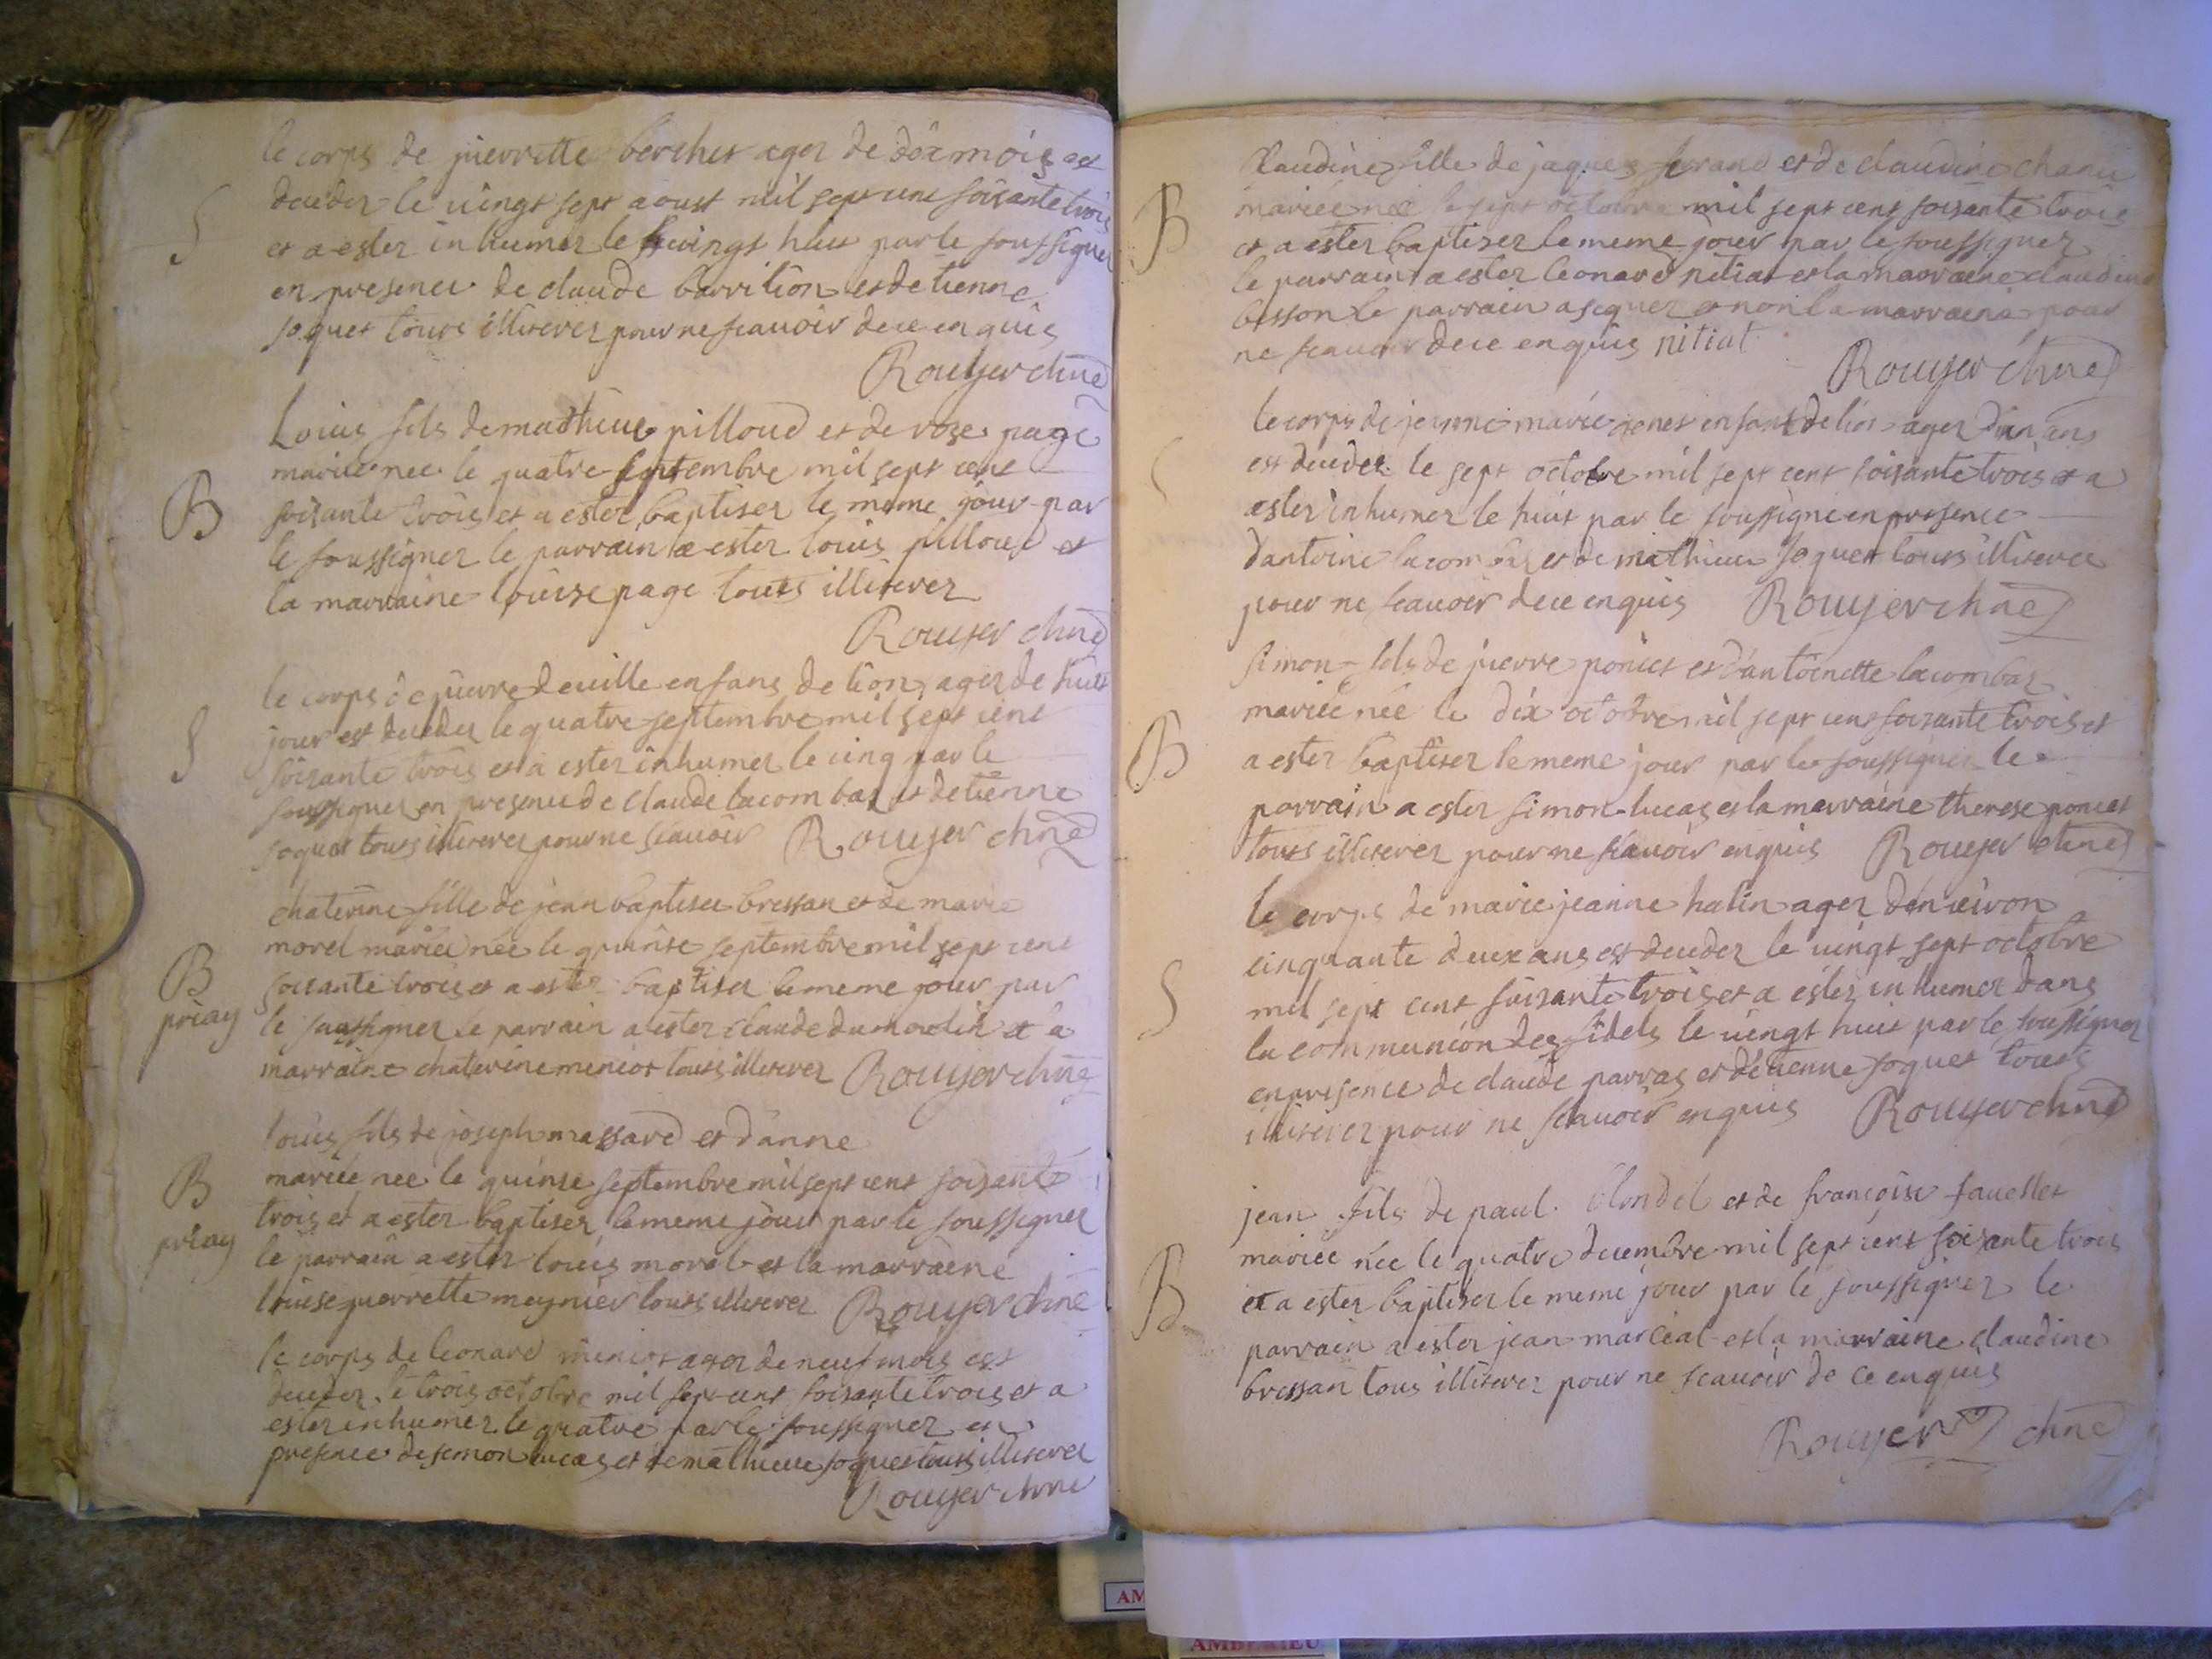 le corps de pierrette berchet ager de dix mois est
S
deceder le vingt sept aoust mil sept cent soisante trois
et a ester inhumer le vingt huit par le soussigner
en presence de claude barrition et detienne
joquet touts illiterez pour ne scauoir dece enquis
Rouyer chne
Louis fils de mathieu pilloud et de rose page
mariee nee le quatre septembre mil sept cent
B
soisante trois et a ester baptiser le meme jour par
le soussigner le parrain a ester louis pilloud et
la marraine louise page touts illiterez
Rouyer chne
le corps de pierre deuille enfans de lion ager de huit
S
jour est deceder le quatre septembre mil sept cent
soisante trois et a ester inhumer le cinq par le
soussigner en presence de claude lacombaz et detienne
joquet touts illiterez pour ne scauoir Rouyer chne
chaterine fille de jean baptiste bressan et de marie
morel mariée née le quinse septembre mil sept cent
B
soisante trois et a ester baptiser le meme jour par
priay
le soussigner le parrain a ester claude dumolin et la
marraine chaterine meniot touts illiterez Rouyer chne
louis fils de joseph massard et d'anne
B
mariée nee le quinse septembre mil sept cent soisante
trois et a ester baptiser le meme jour par le soussigner
priay
le parrain a ester louis morel et la marraine
louise pierrette meynier touts illiterez Rouyer chne
le corps de leonard meniot ager de neuf mois est
deceder le trois octobre mil sept cent soisante trois et a
ester inhumer le quatre par le soussigner en
presence de simon lucas et de mathieu joquet touts illiterez
Rouyer chne
Claudine fille de jaques ferrand et de claudine
B
mariée née le sept octobre mil sept cent soisante trois
et a ester baptiser le meme jour par le soussigner
le parrain a ester leonard nitiat et la marraine claudine
besson le parrain a signer et non la marraine pour
ne scauoir dece enquis nitiat
Rouyer chne
le corps de jeanne marie genet enfant de lion ager d'un ans
S
est deceder le sept octobre mil sept cent soisante trois et a
ester inhumer le huit par le soussigne en presence
d'antoine lacombaz et de mathieu joquet touts illiterez
pour ne scauoir dece enquis Rouyer chne
simon fils de pierre poncet et d'antoinette lacombaz
B
mariée née le dix octobre mil sept cent soisante trois et
a ester baptiser le meme jour par le soussigner le
parrain a ester simon lucas et la marraine therese poncet
touts illiterez pour ne scauoir enquis Rouyer chne
le corps de marie jeanne halin ager denuiron
cinquante deux ans est deceder le vingt sept octobre
S
mil sept cent soisante trois et a ester inhumer dans
la communion des fidels le vingt huit par le soussigner
en presence de claude parras et detienne joquet touts
illiterez pour ne scauoir enquis Rouyer chne
jean fils de paul blondel et de francoise fauellet
mariée née le quatre decembre mil sept cent soisante trois
B
et a ester baptiser le meme jour par le soussigner le
parrain a ester jean marcial et la marraine claudine
bressan tous illiterez pour ne scauoir de ce enquis
Rouyer chne
AM